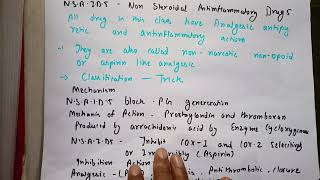 N.S.A.I.D.S - Non Steroidal Antiinflammatory Drugs
All drug in this class have Analgesic antipy
retic and Antiinflammatory actions
→ They are also called non-narcotic non-opoid
or aspirin like analgesic
→ Classification — Trick
Mechanism
N.S.A.I.D.S block - PG genereration
Mechanis of Action - Prostaglandin and thromboxan
Produced by arrachidonic acid by Enzyme Cycloxygenas
N.S.A.I.DS - Inhibit COX-I and COX-2 Selectively
or Irreversibly (Aspirin)
Inhibition Action
Analgesic - Antithrombotic, closure